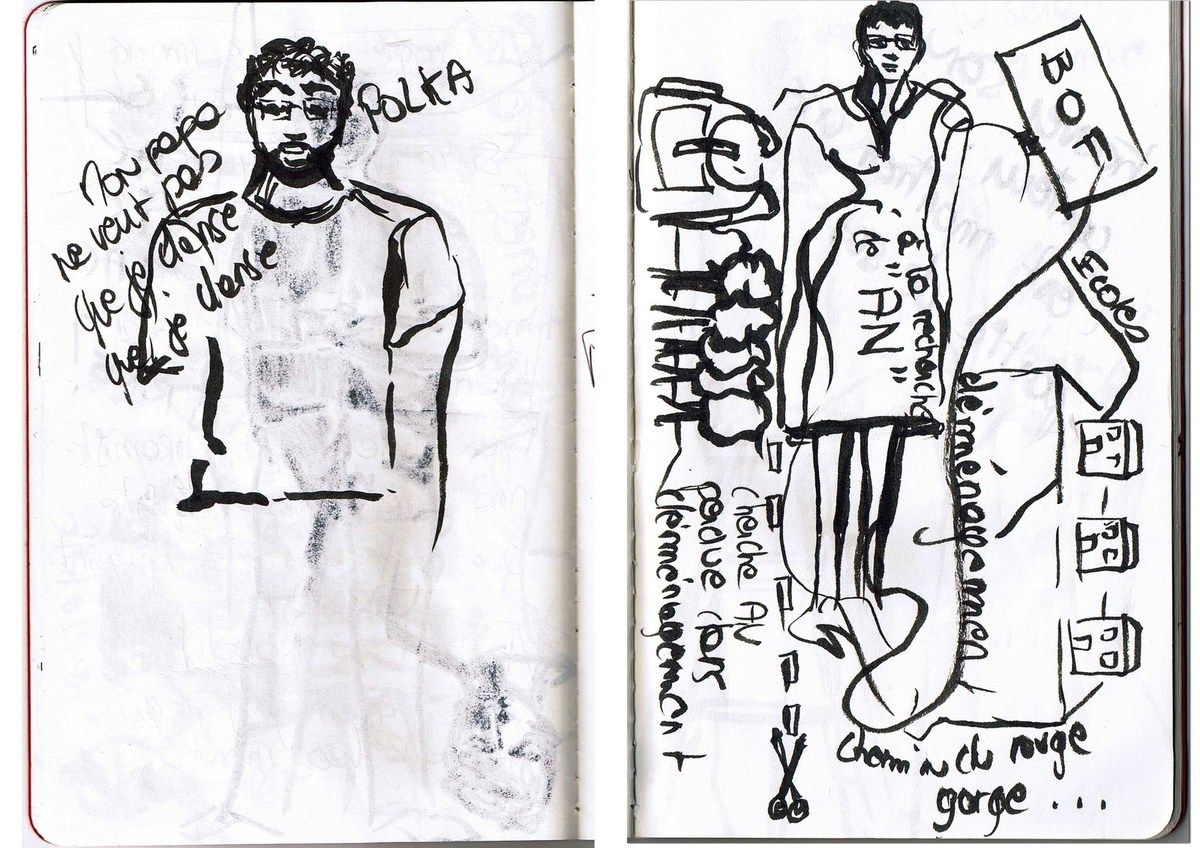 POLKA
Mon papa
ne veut pas
que je danse
que je danse
BOF
Ecoles
à la recherche
de "AN"
déménagemen
cherche AN
perdue dans
déménagement
chemin du rouge
gorge ...